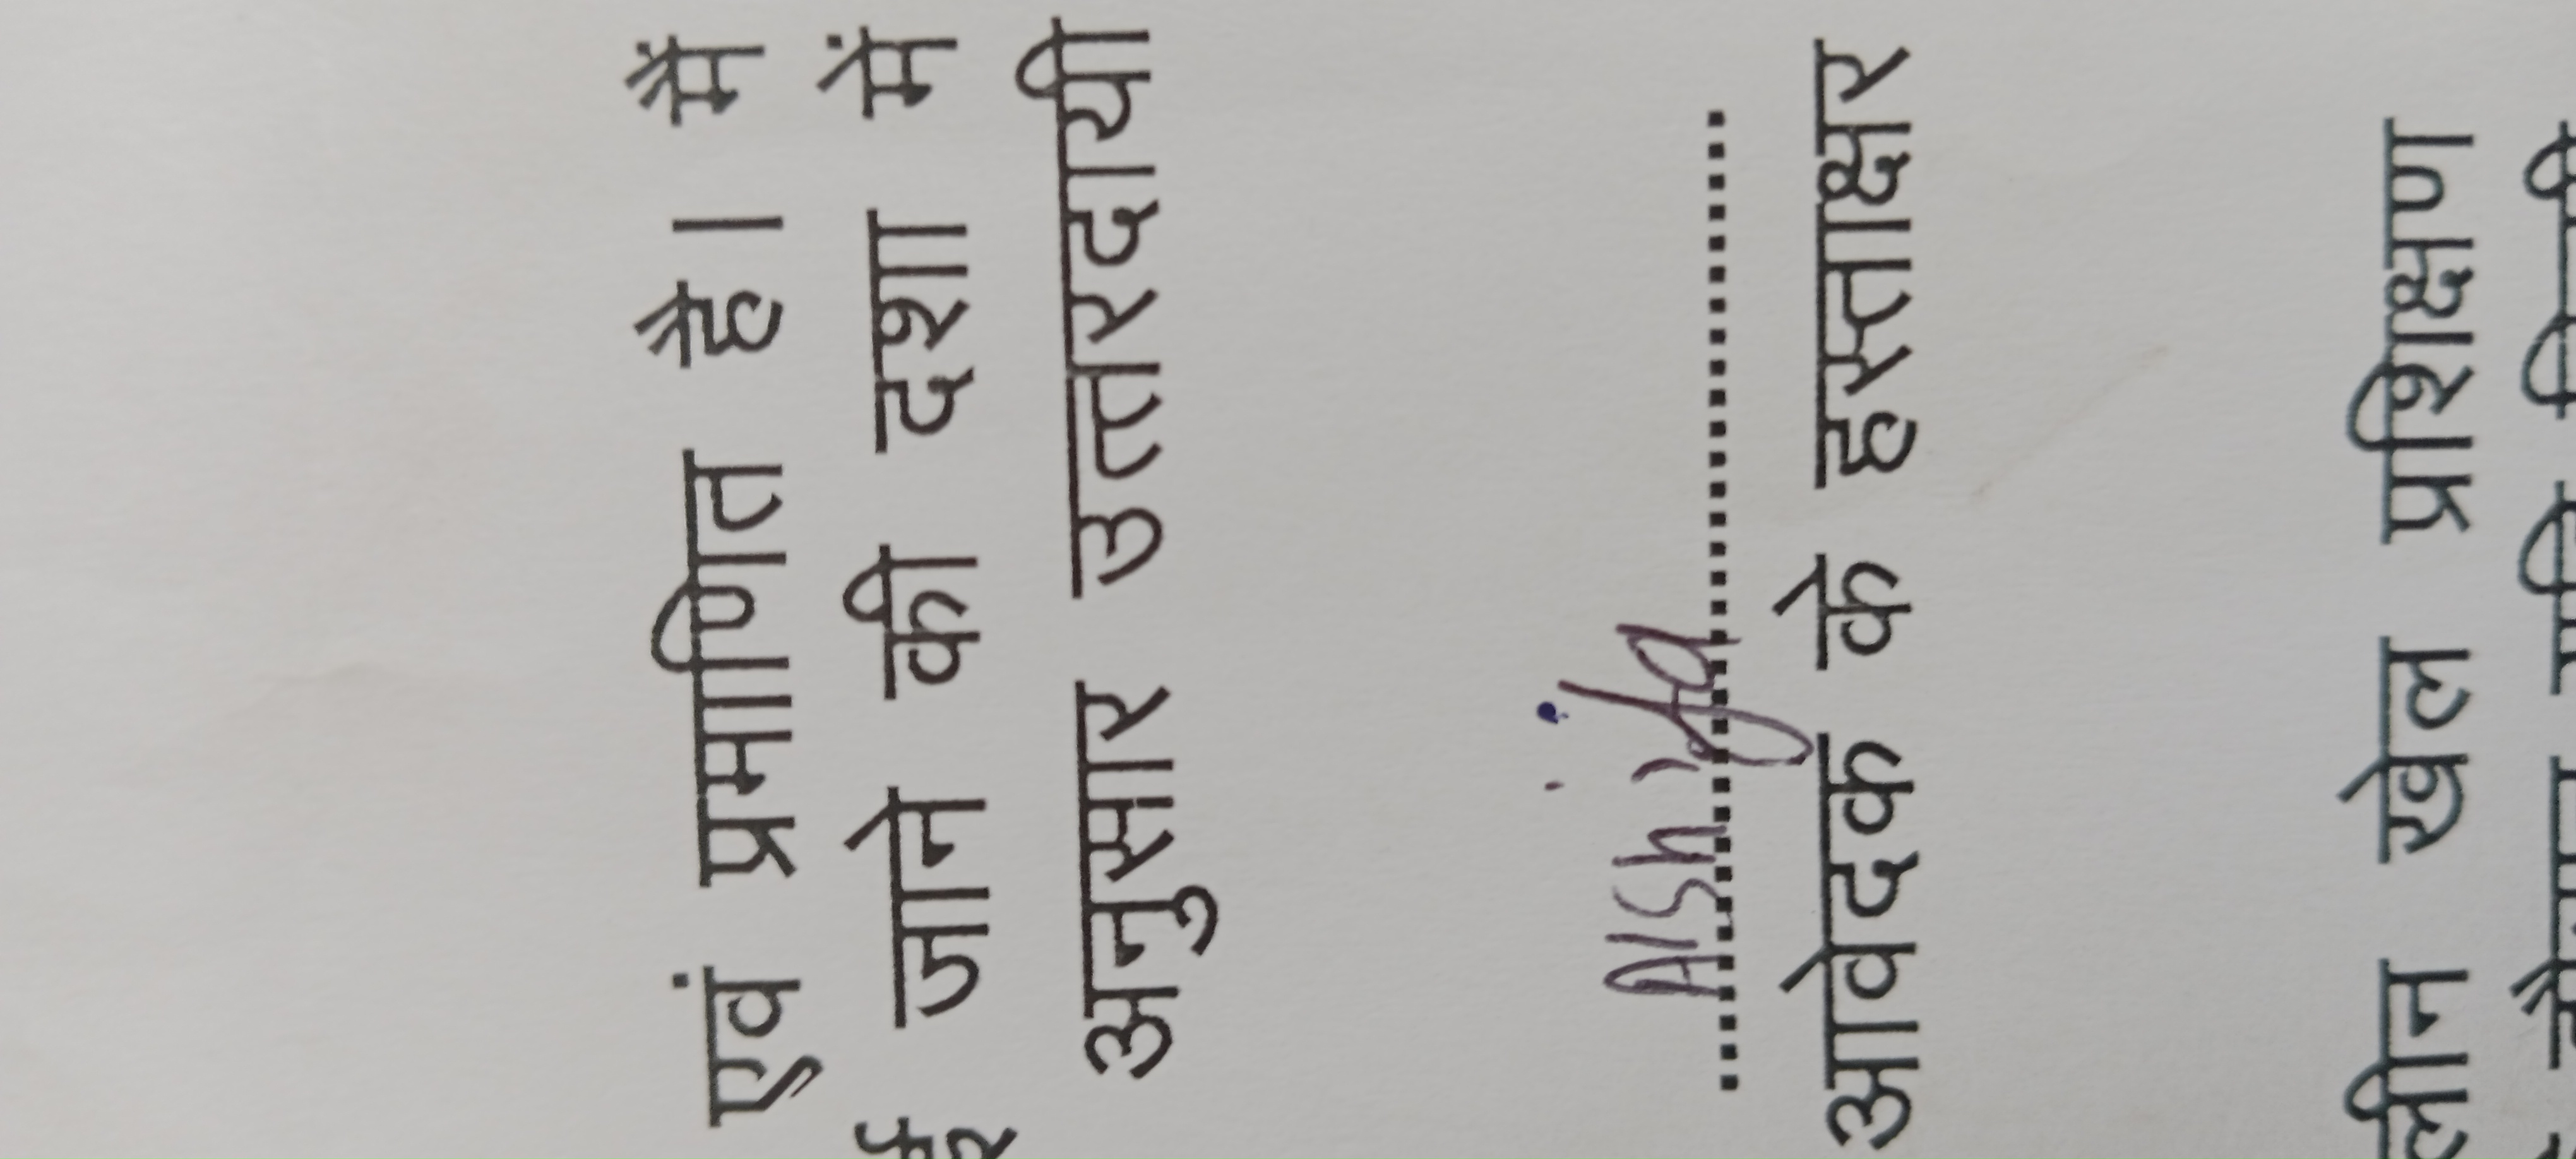 एवं प्रमाणित है। मैं
जाने की दशा में
अनुसार उत्तरदायी
Alshifa
आवेदक के हस्ताक्षर
लीन खेल प्रशिक्षण